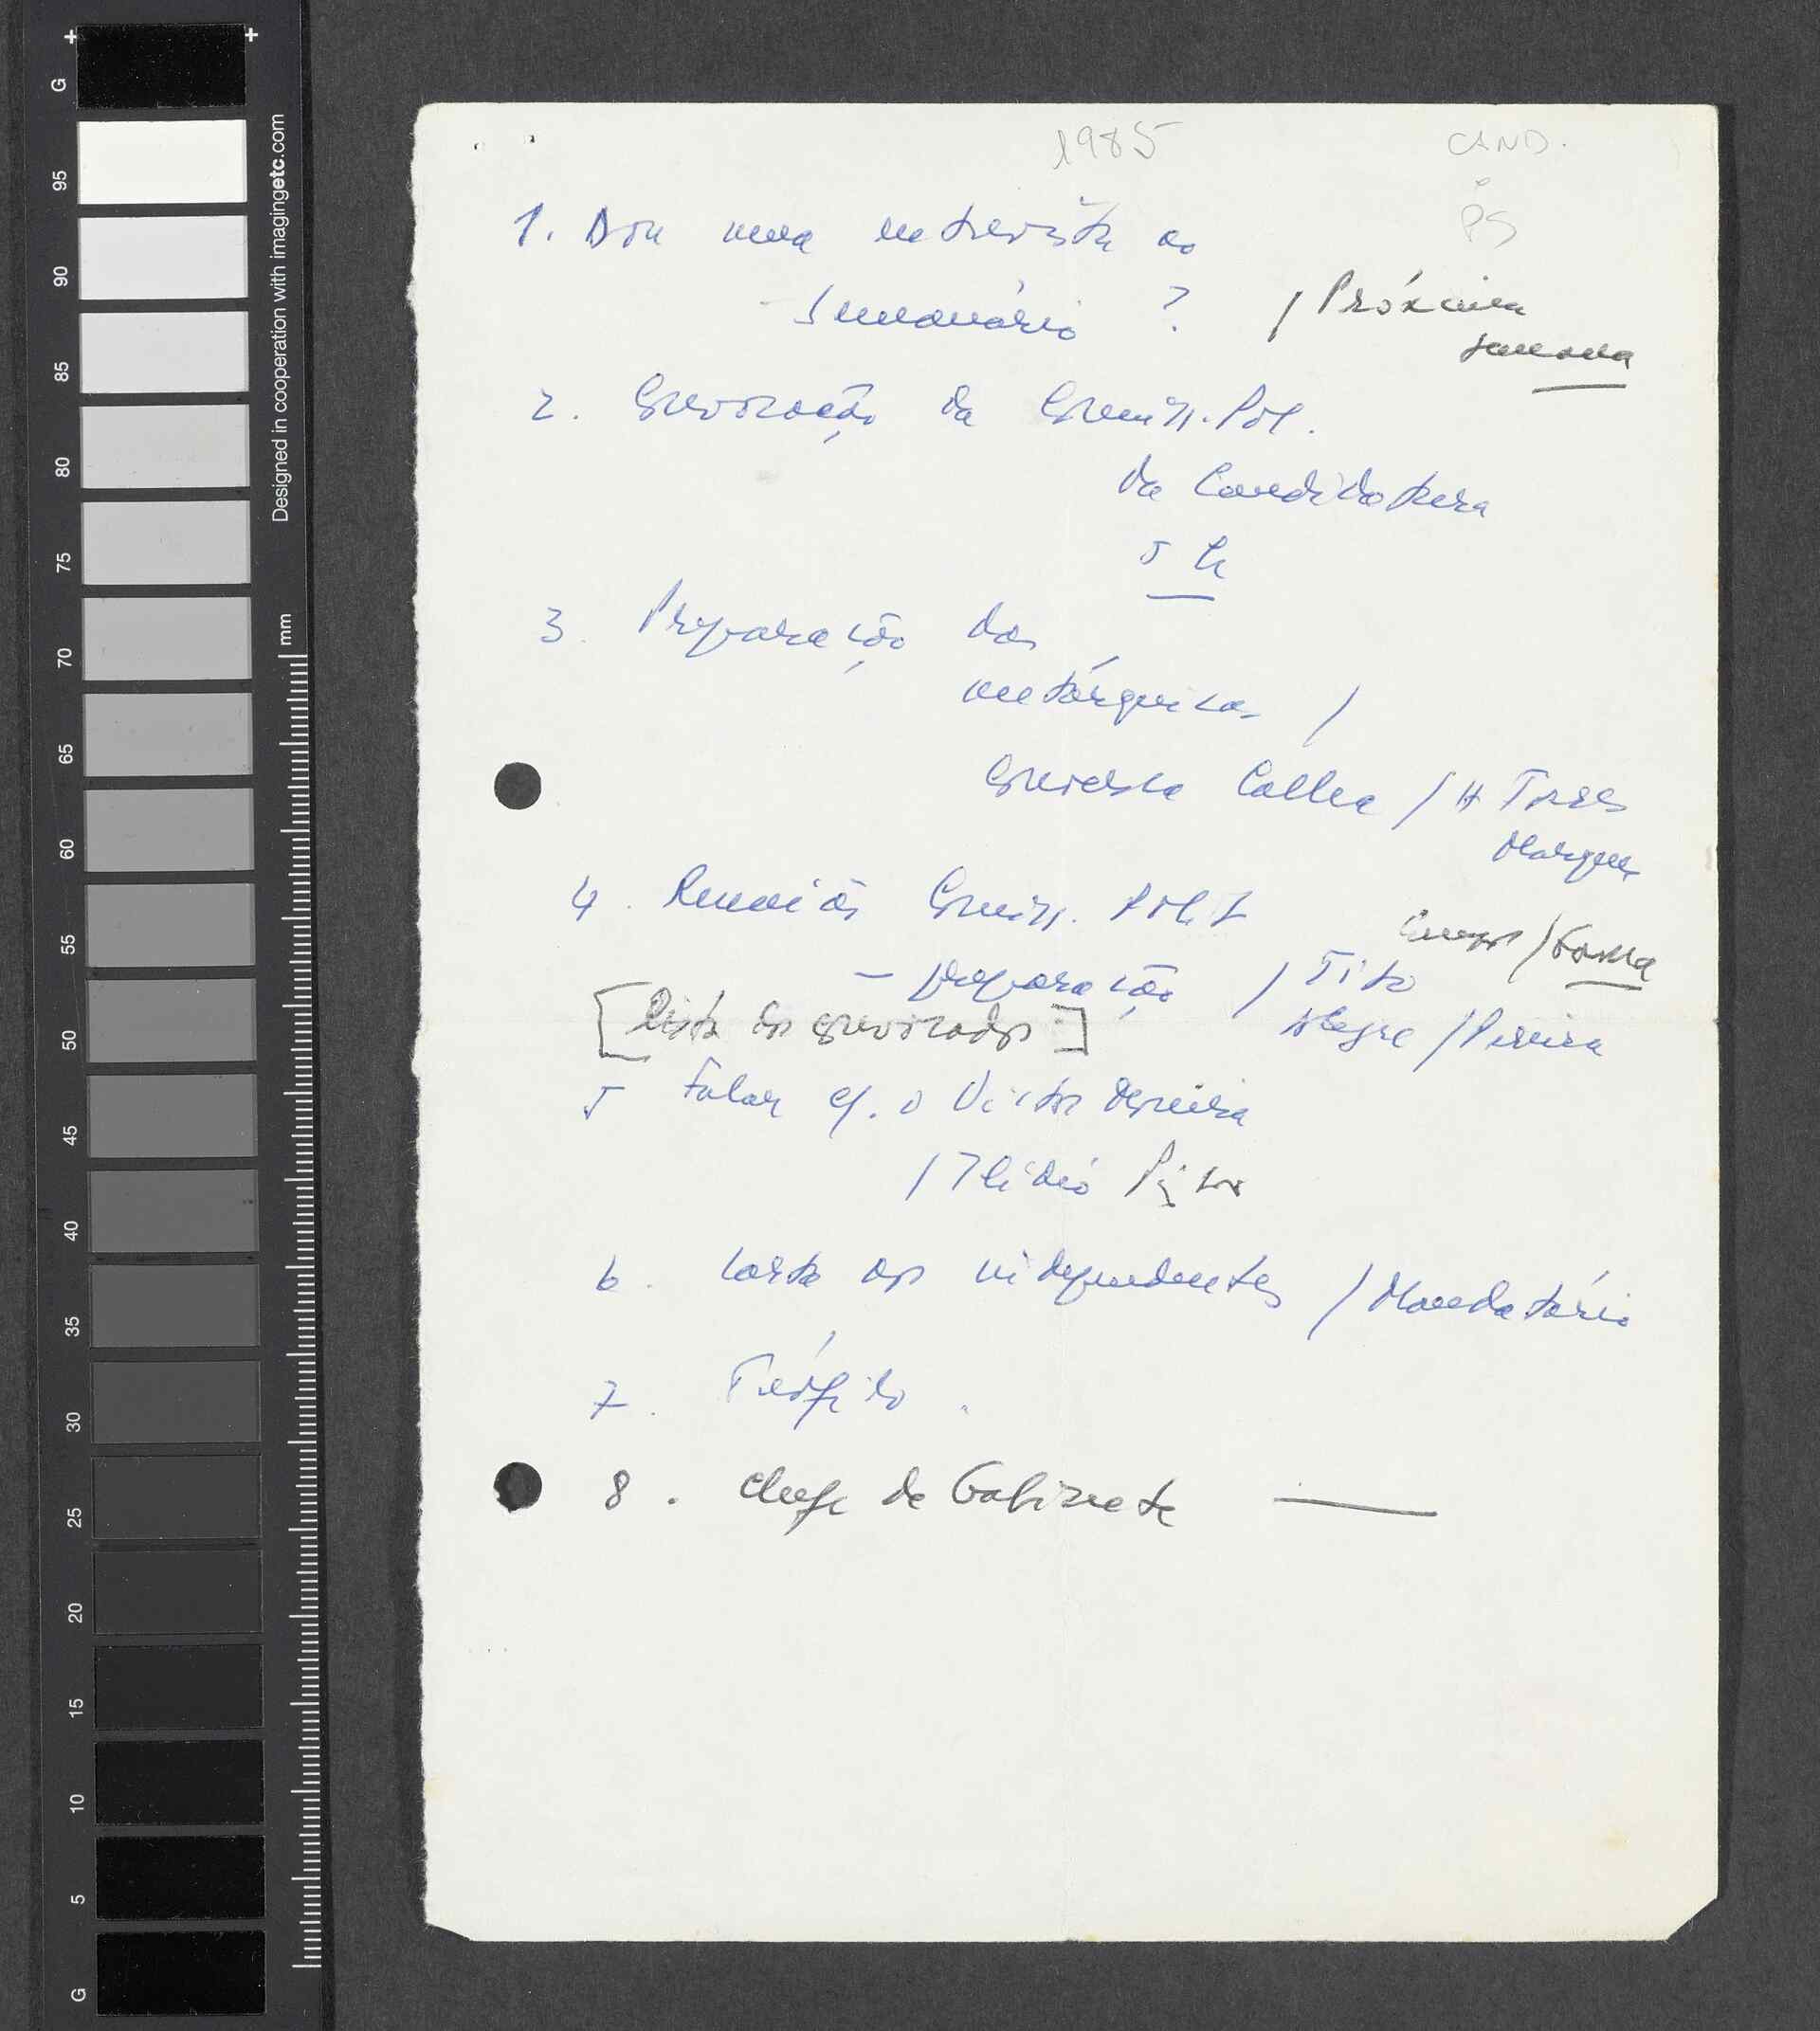 1985
CAND.
PS
1. Dou uma entrevista ao
Semanário ? / Próxima
semana
2. Convocação da Comiss. Pol.
da Candidatura
5ª
3. Preparação das
autárquicas /
Conversa / H Torres
Marques
4. Reunião Comiss. Polit
/ Gama
– preparação / Tito
Alegre / Pereira
[Lista dos convocados]
5 Falar c/. o Victor Pereira
/ Ilídio Pinho
6. Carta aos independentes / Mandatário
7. Teófilo
8. Chefe de Gabinete
G
95
90
85
80
75
70
65
60
55
50
45
40
35
30
25
20
15
10
5
G
Designed in cooperation with imagingetc.com
mm